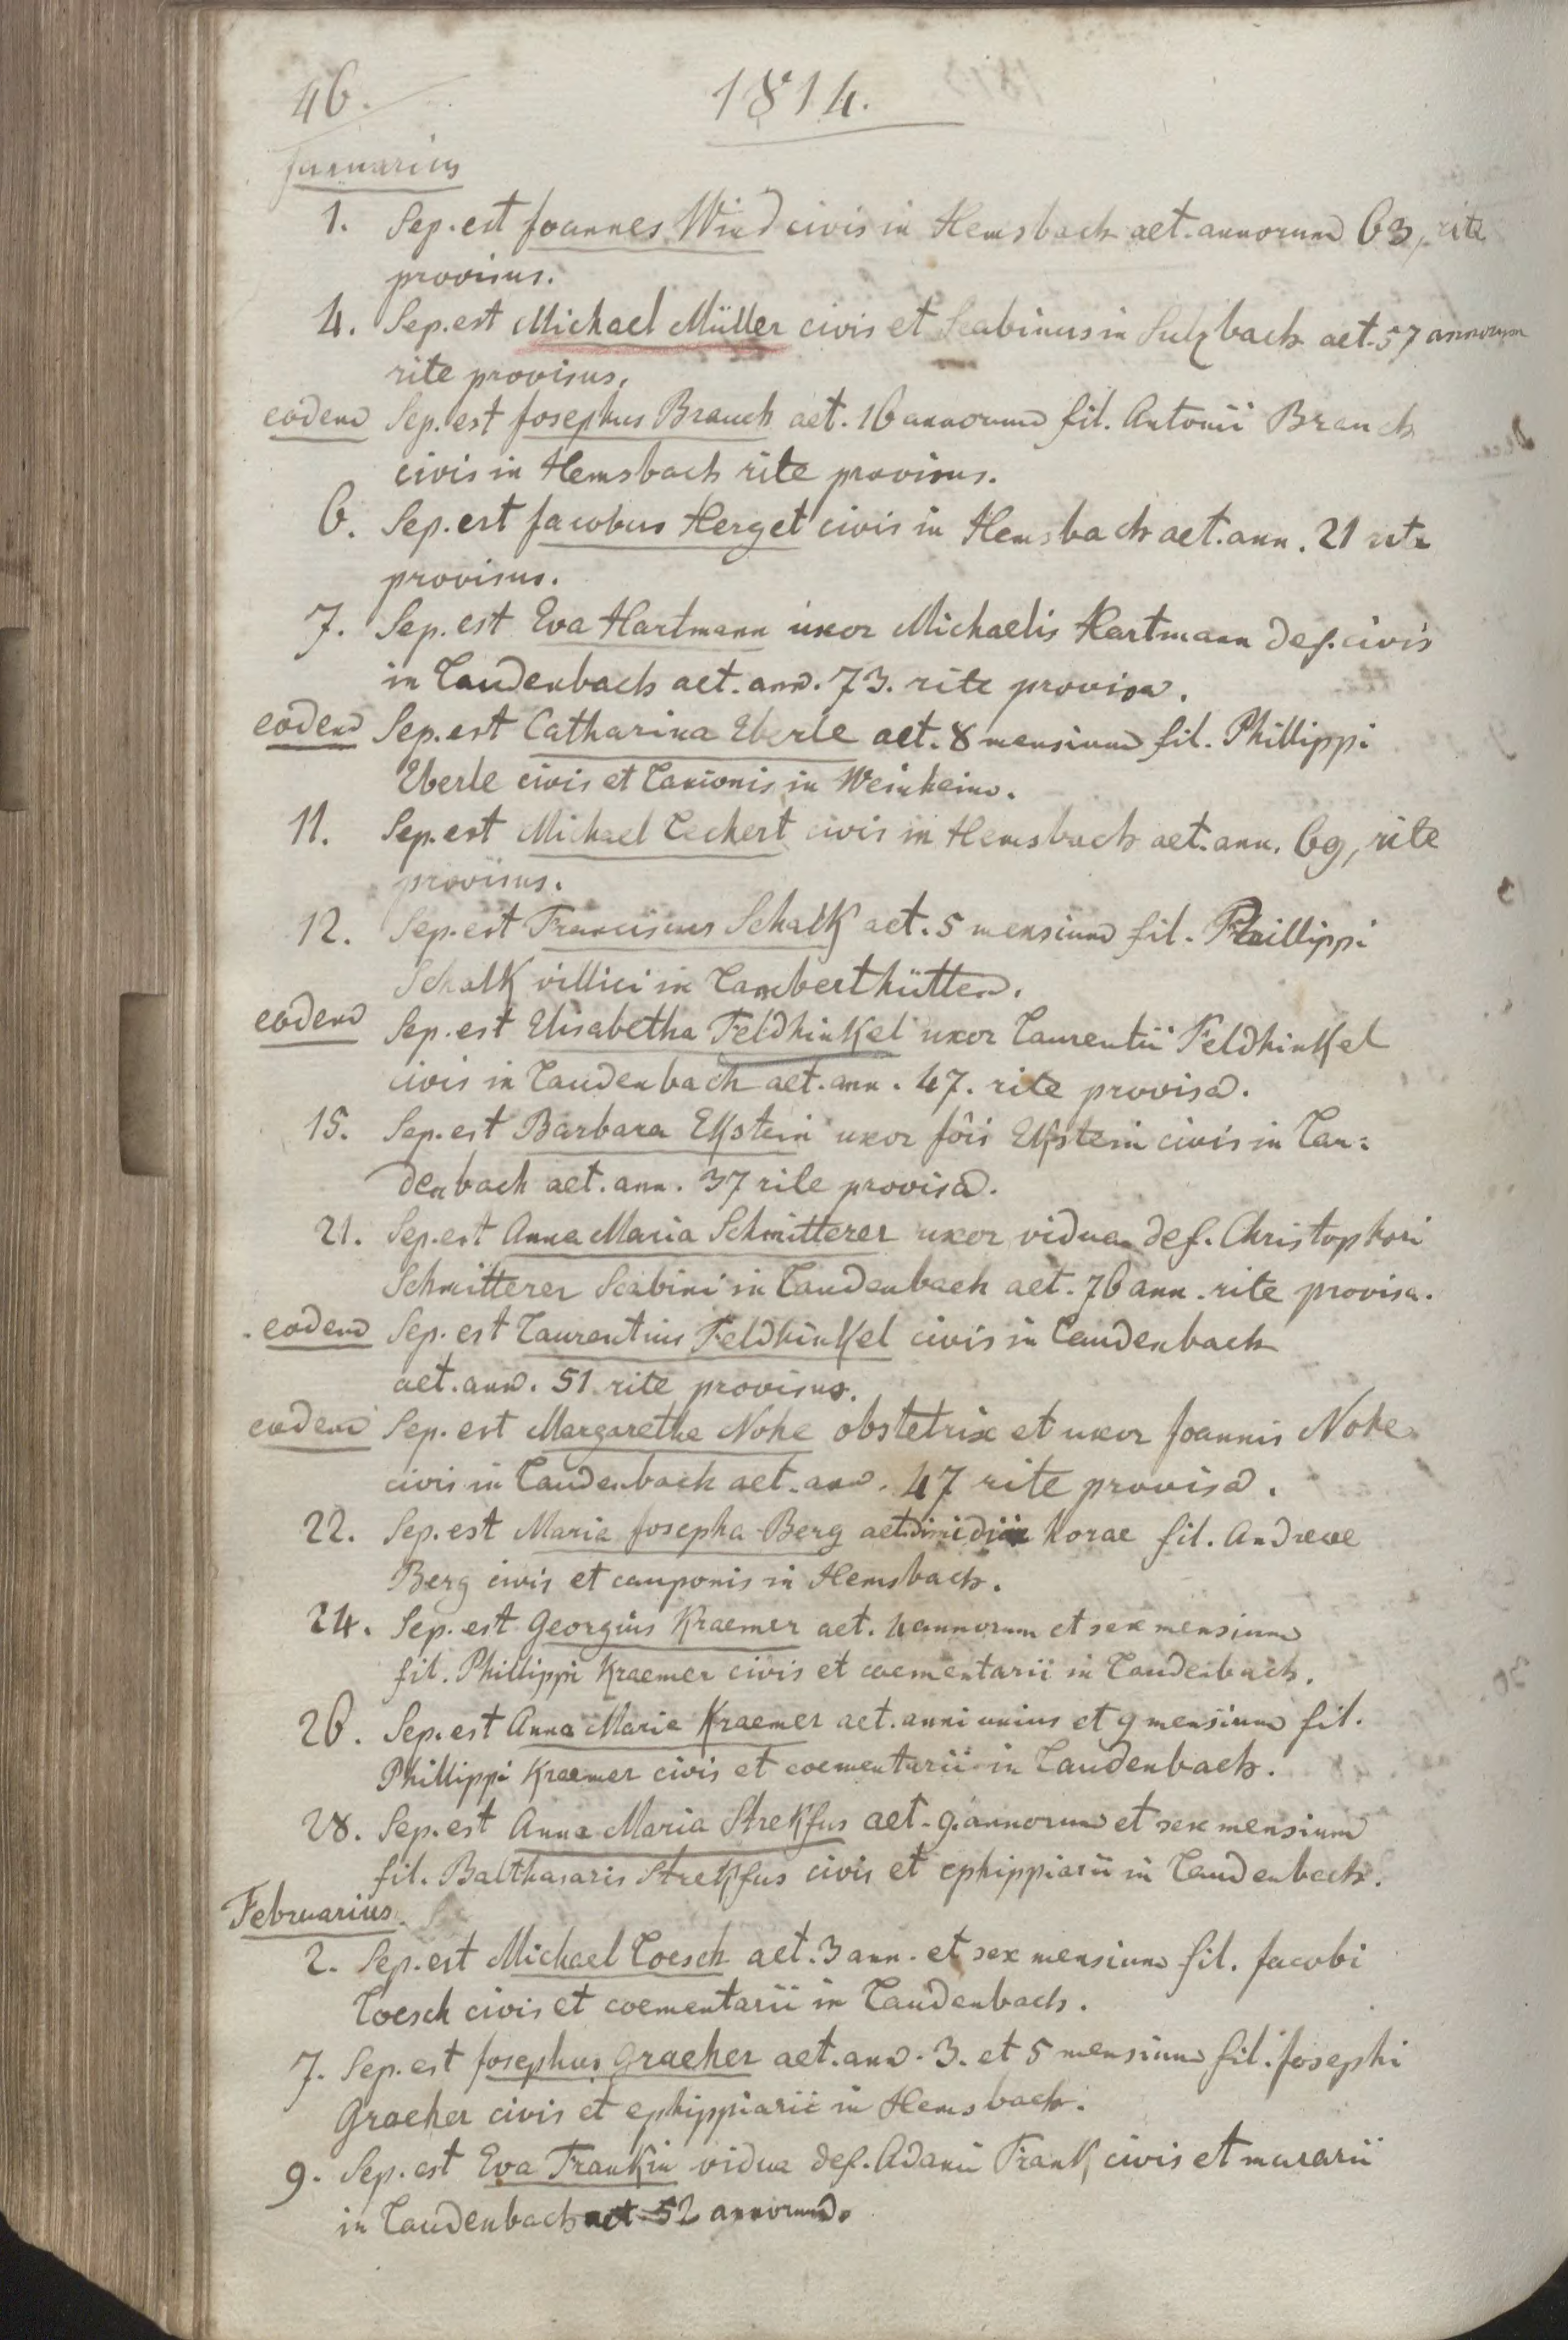 46.
1814.
Januarius
1. Sep. est Joannes Wind civis in Hemsbach aet. annorum 63, rite
provisus.
4. Sep. est Michael Müller civis et Scabinus in Sulzbach aet. 57 annorum
rite provisus.
eodem Sep. est Josephus Brauch aet. 16 annorum fil. Antonii Brauch
civis in Hemsbach rite provisus.
6. Sep. est Jacobus Herget civis in Hemsbach aet. ann. 21 rite
provisus.
7. Sep. est Eva Hartmann uxor Michaelis Hartmann def. civis
in Laudenbach aet. ann. 73. rite provisa.
eodem Sep. est Catharina Eberle aet. 8 mensium fil. Phillippi
Eberle civis et Lanionis in Weinheim.
11. Sep. est Michael Leckert civis in Hemsbach aet. ann. 69, rite
provisus.
12. Sep. est Franciscus Schalk aet. 5 mensium fil. Phillippi
Schalk villici in Lamberthütten.
eodem Sep. est Elisabetha Feldhinkel uxor Laurentii Feldhinkel
civis in Laudenbach aet. ann. 47. rite provisa.
15. Sep. est Barbara Ekstein uxor Jöis Ekstein civis in Lau:
denbach aet. ann. 37 rite provisa.
21. Sep. est Anna Maria Schmitterer uxor vidua def. Christophori
Schmitterer Scabini in Laudenbach aet. 76 ann. rite provisa.
eodem Sep. est Laurentius Feldhinkel civis in Laudenbach
aet. ann. 51 rite provisus.
eodem Sep. est Margaretha Nohe obstetrix et uxor Joannis Nohe
civis in Laudenbach aet. ann. 47 rite provisa.
22. Sep. est Maria Josepha Berg aet. dimidiae horae fil. Andreae
Berg civis et cauponis in Hemsbach.
24. Sep. est Georgius Kraemer aet. 4 annorum et sex mensium
fil. Phillippi Kraemer civis et coementarii in Laudenbach.
26. Sep. est Anna Maria Kraemer aet. anni unius et 9 mensium fil.
Phillippi Kraemer civis et coementarii in Laudenbach.
28. Sep. est Anna Maria Strekfus aet. 9. annorum et sex mensium
fil. Balthasaris Strekfus civis et ephippiarii in Laudenbach.
Februarius.
2. Sep. est Michael Loesch aet. 3 ann. et sex mensium fil. Jacobi
Loesch civis et coementarii in Laudenbach.
7. Sep. est Josephus Graeher aet. ann. 3. et 5 mensium fil. Josephi
Graeher civis et ephippiarii in Hemsbach.
9. Sep. est Eva Frankin vidua def. Adami Frank civis et murarii
in Laudenbach aet. 52 annorum.